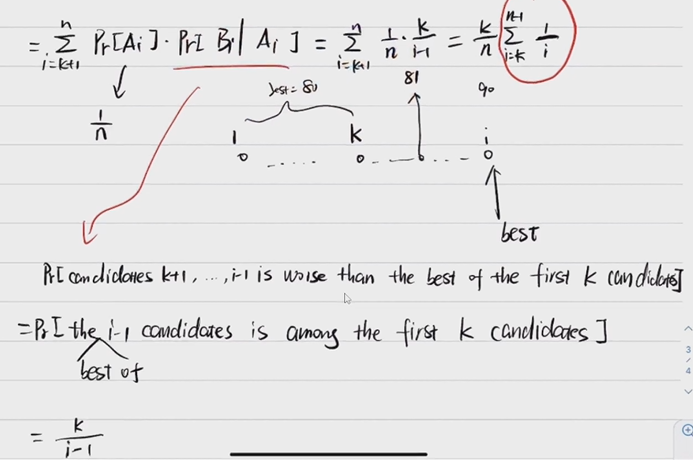 = Σ_{i=k+1}^{n} Pr[Ai]·Pr[Bi|Ai] = Σ_{i=k+1}^{n} 1/n · k/(i-1) = k/n Σ_{i=k}^{n-1} 1/i
best = 80 81 90
1/n
1 k i
best
Pr[candidates k+1, ..., i-1 is worse than the best of the first k candidates]
=Pr[the i-1 candidates is among the first k candidates]
best of
= k/(i-1)
3
/
4